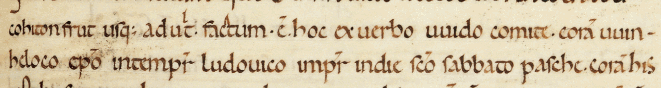 cohiton fr̃uit usq; ad ult̃. factum. ē. hoc ex uerbo uuido comite. corā uuin-
hdoco ep̃o in tempr̃ ludouico impr̃ in die sc̃o sabbato pasche. corā his